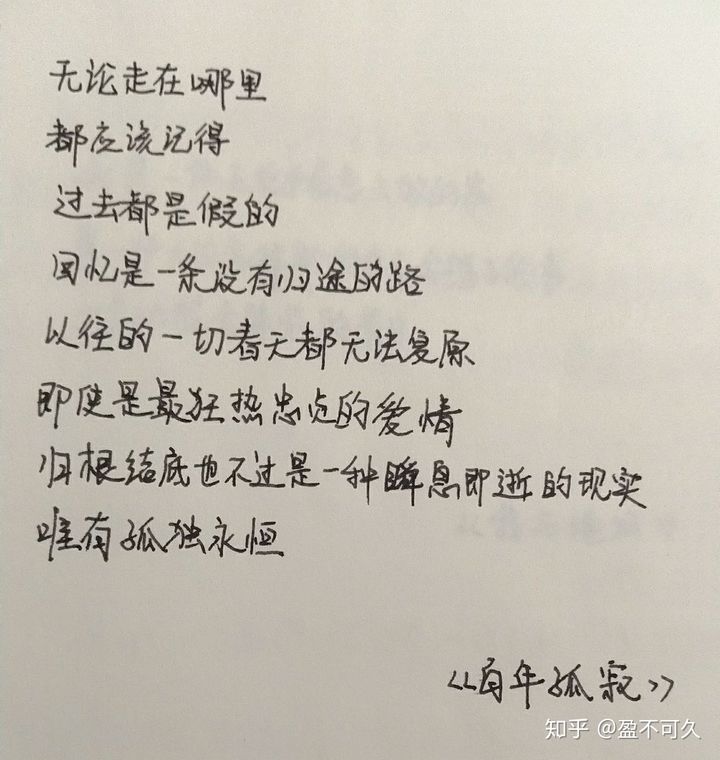 无论走在哪里
都应该记得
过去都是假的
回忆是一条没有归途的路
以往的一切春天都无法复原
即使是最狂热忠贞的爱情
归根结底也不过是一种瞬息即逝的现实
唯有孤独永恒
《百年孤寂》
知乎 @盈不可久